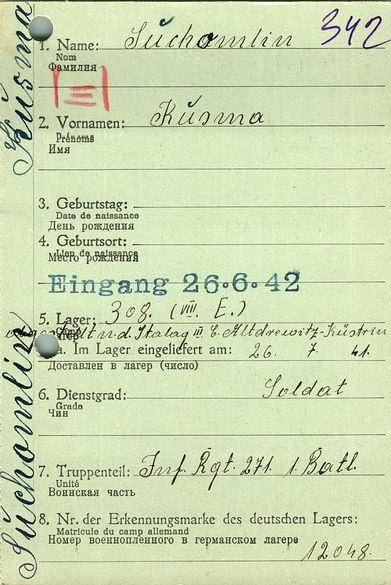 342
1. Name: Suchomlin
Nom
Фамилия
2. Vornamen: Kusma
Prénoms
Имя
3. Geburtstag:
Date de naissance
День рождения
4. Geburtsort:
Lieu de naissance
Место рождения
Eingang 26.6.42
5. Lager: 308. (VIII. E.)
n. d. Stalag III C Altdrewitz-Küstrin
a. Im Lager eingeliefert am: 26. 7. 41.
Доставлен в лагерь (число)
6. Dienstgrad: Soldat
Grade
Чин
7. Truppenteil: Inf. Rgt. 271. 1. Batl.
Unité
Воинская часть
8. Nr. der Erkennungsmarke des deutschen Lagers:
Matricule du camp allemand
Номер военнопленного в германском лагере
12048.
Suchomlin Kusma